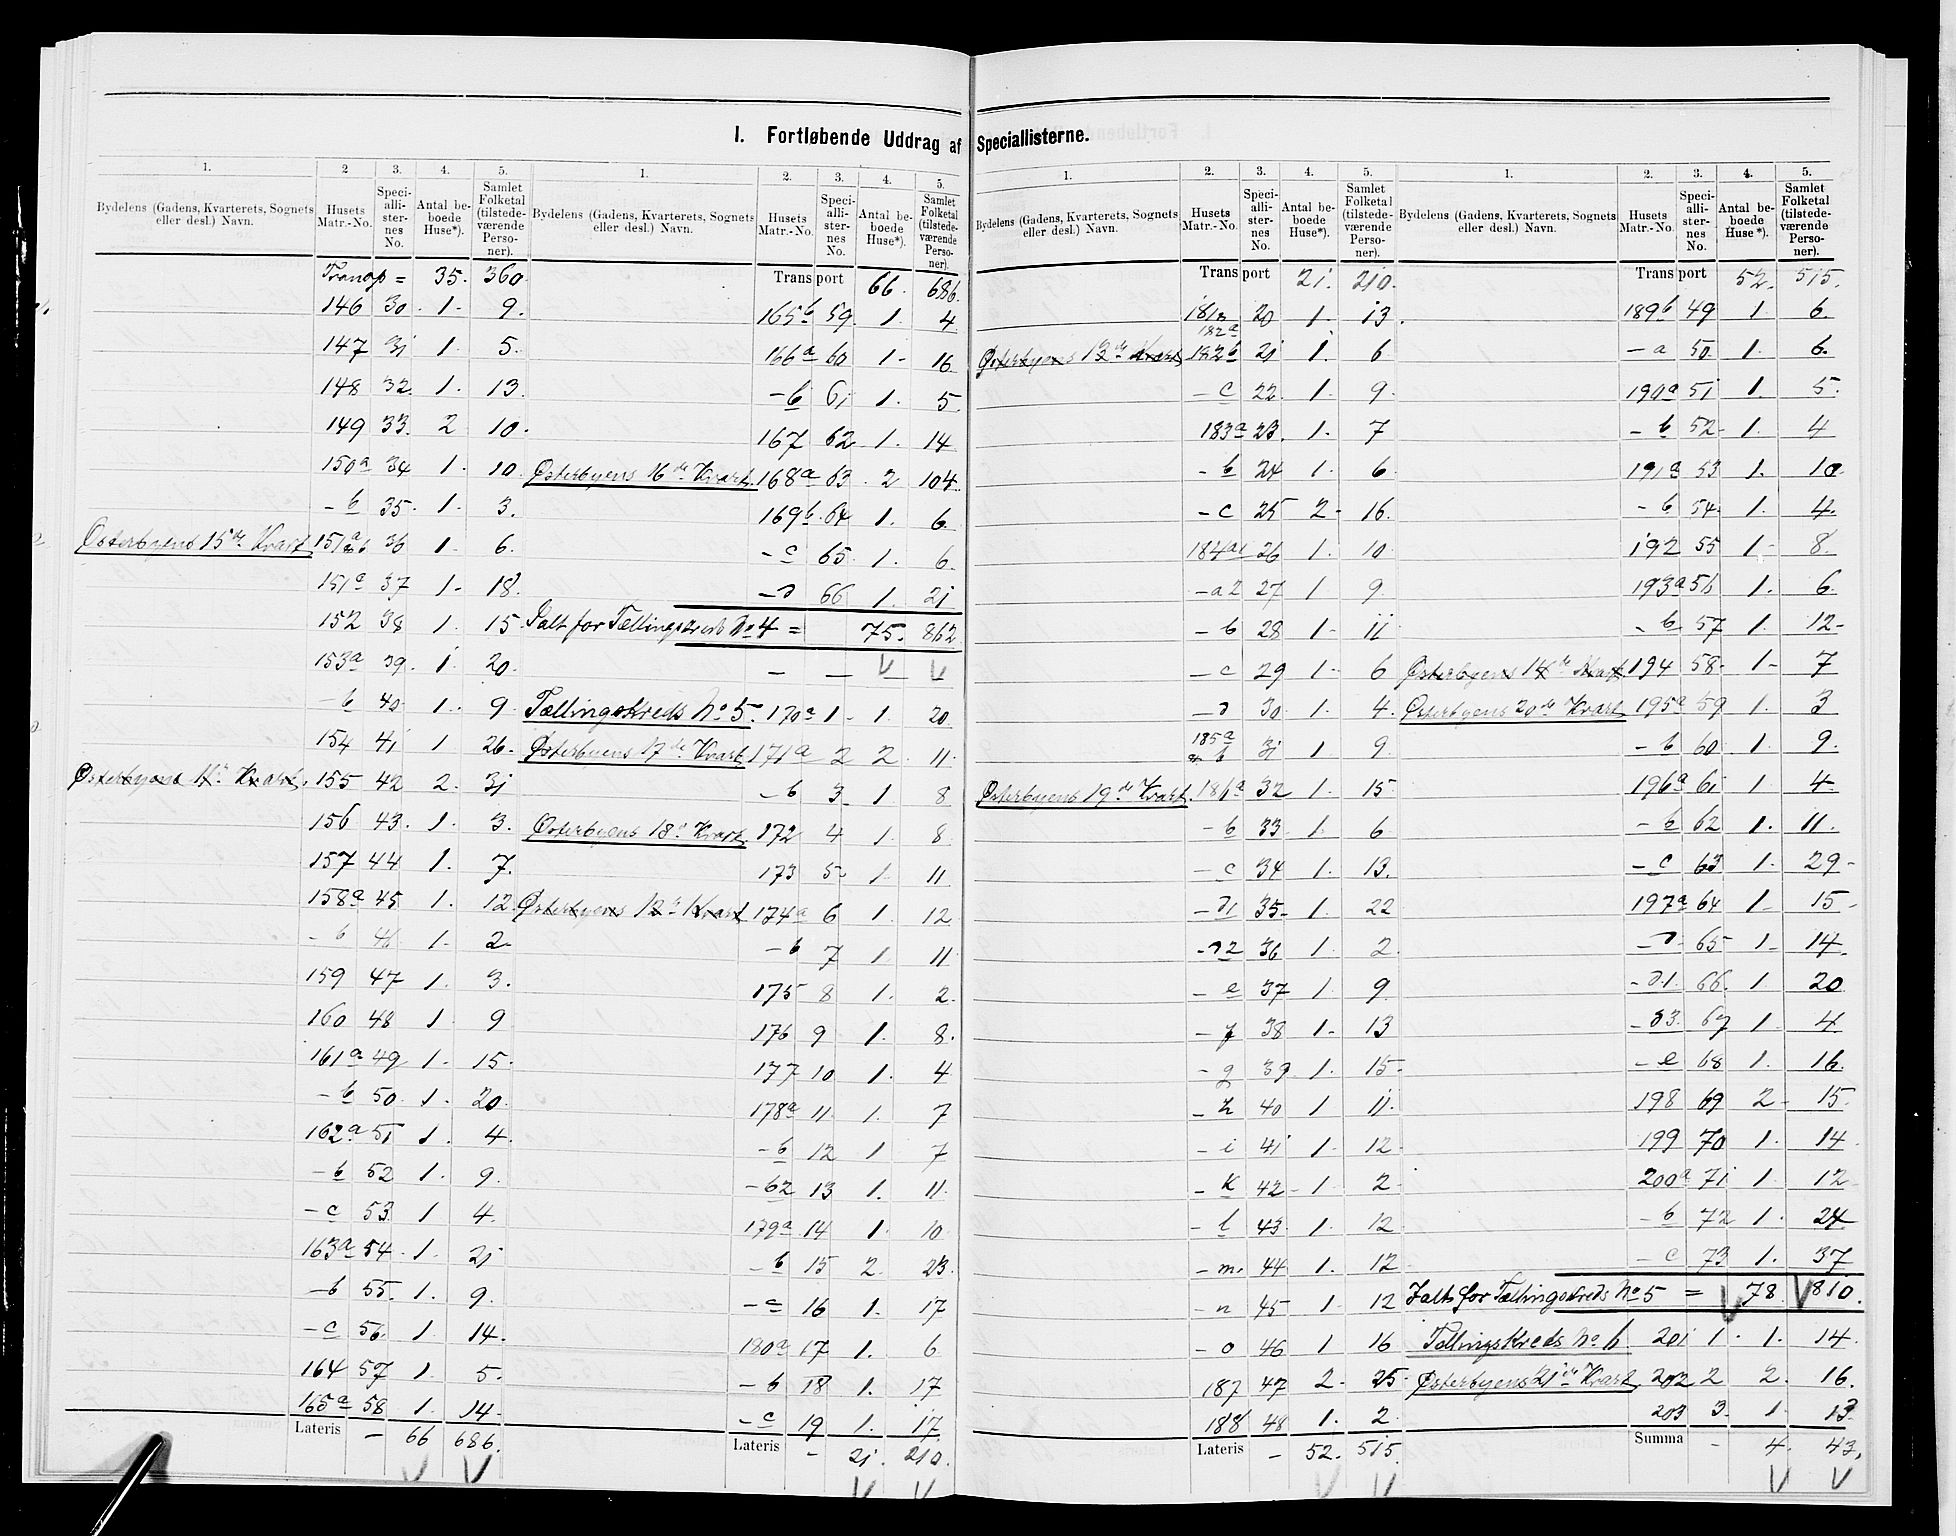 I. Fortløbende Uddrag af Speciallisterne.
1. 2 3. 4. 5.
Bydelens (Gadens, Kvarterets, Sognets eller desl.) Navn. Husets Matr.-No. Speciallisternes No. Antal beboede Huse*). Samlet Folketal (tilstedeværende Personer).
Transp = 35. 360.
146 30. 1. 9.
147 31 1. 5.
148 32. 1. 13.
149 33. 2 10.
150a 34 1. 10.
- b 35. 1. 3.
Østerbyens 15de Kvart. 151a & b 36 1. 6.
151a 37 1. 18.
152 38 1. 15.
153a 39. 1. 20.
- b 40. 1. 9.
154 41 1 26.
155 42 2. 31
156 43. 1. 3.
157 44 1. 7.
158a 45 1. 12.
- b 46 1. 2.
159 47 1. 3.
160 48 1. 9
161a 49 1. 15.
- b 50. 1. 20.
162a 51 1. 4.
- b 52 1. 9.
- c 53 1 4.
163a 54. 1. 21
- b 55. 1. 9.
- c 56. 1. 14.
164 57 1. 5.
165a 58 1. 14.
Lateris - 66 686.
1. 2. 3. 4. 5.
Bydelens (Gadens, Kvarterets, Sognets eller desl.) Navn. Husets Matr.-No. Speciallisternes No. Antal beboede Huse*). Samlet Folketal (tilstedeværende Personer).
Transport 66. 686.
165b 59. 1. 4
166a 60 1. 16
- b 61 1. 5.
167 62 1. 14
Østerbyens 16de Kvart. 168a 63. 2 104.
169b. 64 1. 6.
- c 65. 1. 6.
- d 66 1. 21
Ialt for Tællingskreds No 4 = 75. 862
- - V V
Tællingskreds No 5. 170a 1. 1. 20
Østerbyens 17de Kvart. 171a 2 2. 11.
- b 3. 1 8
Østerbyens 18de Kvart. 172 4 1. 8
173 5 1. 11
174a 6 1. 12
- b 7 1. 11
175 8 1. 2.
176 9 1. 8.
177 10 1. 4
178a 11 1. 7
- b 12 1 7
- b2 13 1. 11.
179a 14 1. 10
- b 15 2. 23.
- c 16 1. 17
180a 17 1. 6
- b 18 1. 17
- c 19 1. 17.
Lateris - 21. 210.
1. 2. 3. 4. 5.
Bydelens (Gadens, Kvarterets, Sognets eller desl.) Navn. Husets Matr.-No. Speciallisternes No. Antal beboede Huse*). Samlet Folketal (tilstedeværende Personer).
Transport 21. 210.
181 & 182a 20 1. 13.
182b 21 1. 6
- c 22. 1. 9.
183a 23. 1. 7
- b 24 1. 6.
- c 25 2. 16.
184a1 26 1. 10
- a2 27 1 9.
- b 28 1. 11
- c 29 1. 6
- d 30. 1. 4.
185a & b 31 1 9.
Østerbyens 19de Kvart. 186a 32 1. 15
- b 33. 1. 6
- c 34 1. 13.
- d1 35. 1. 22
- d2 36 1. 2.
- e 37 1 9
- f 38 1. 13
- g 39 1. 15.
- h 40 1 11.
- i 41 1. 12.
- k 42 1 2
- l 43. 1. 12
- m. 44 1. 12
- n 45 1 12
- o 46 1 16
187 47 2. 25.
188 48 1. 2.
Lateris - 52. 515.
1. 2. 3. 4. 5.
Bydelens (Gadens, Kvarterets, Sognets eller desl.) Navn. Husets Matr.-No. Speciallisternes No. Antal beboede Huse*). Samlet Folketal (tilstedeværende Personer).
Transport 52. 515.
189b 49 1. 6.
- a 50. 1. 6.
190a 51 1. 5.
- b 52 1. 4
191a 53 1. 10
- b 54. 1. 4.
192 55 1. 8.
193a 56 1. 6.
- b 57 1. 12
194 58. 1. 7
Østerbyens 20de Kvart 195a 59 1. 3
- b 60 1. 9.
196a 61 1 4.
- b 62 1. 11.
- c 63 1. 29
197a 64 1. 15
- d 65 1. 14.
- d1 66. 1. 20
- d3. 67 1 4
- e 68 1. 16.
198 69 2 15.
199 70 1. 14.
200a 71 1. 12
- b 72 1. 24
- c 73 1. 37
Ialt for Tællingskreds No 5 = V 78. V 810.
Tællingskreds No 6 201 1. 1. 14.
Østerbyens 21de Kvart. 202 2 2. 16.
203 3. 1 13.
Summa - 4. 43.